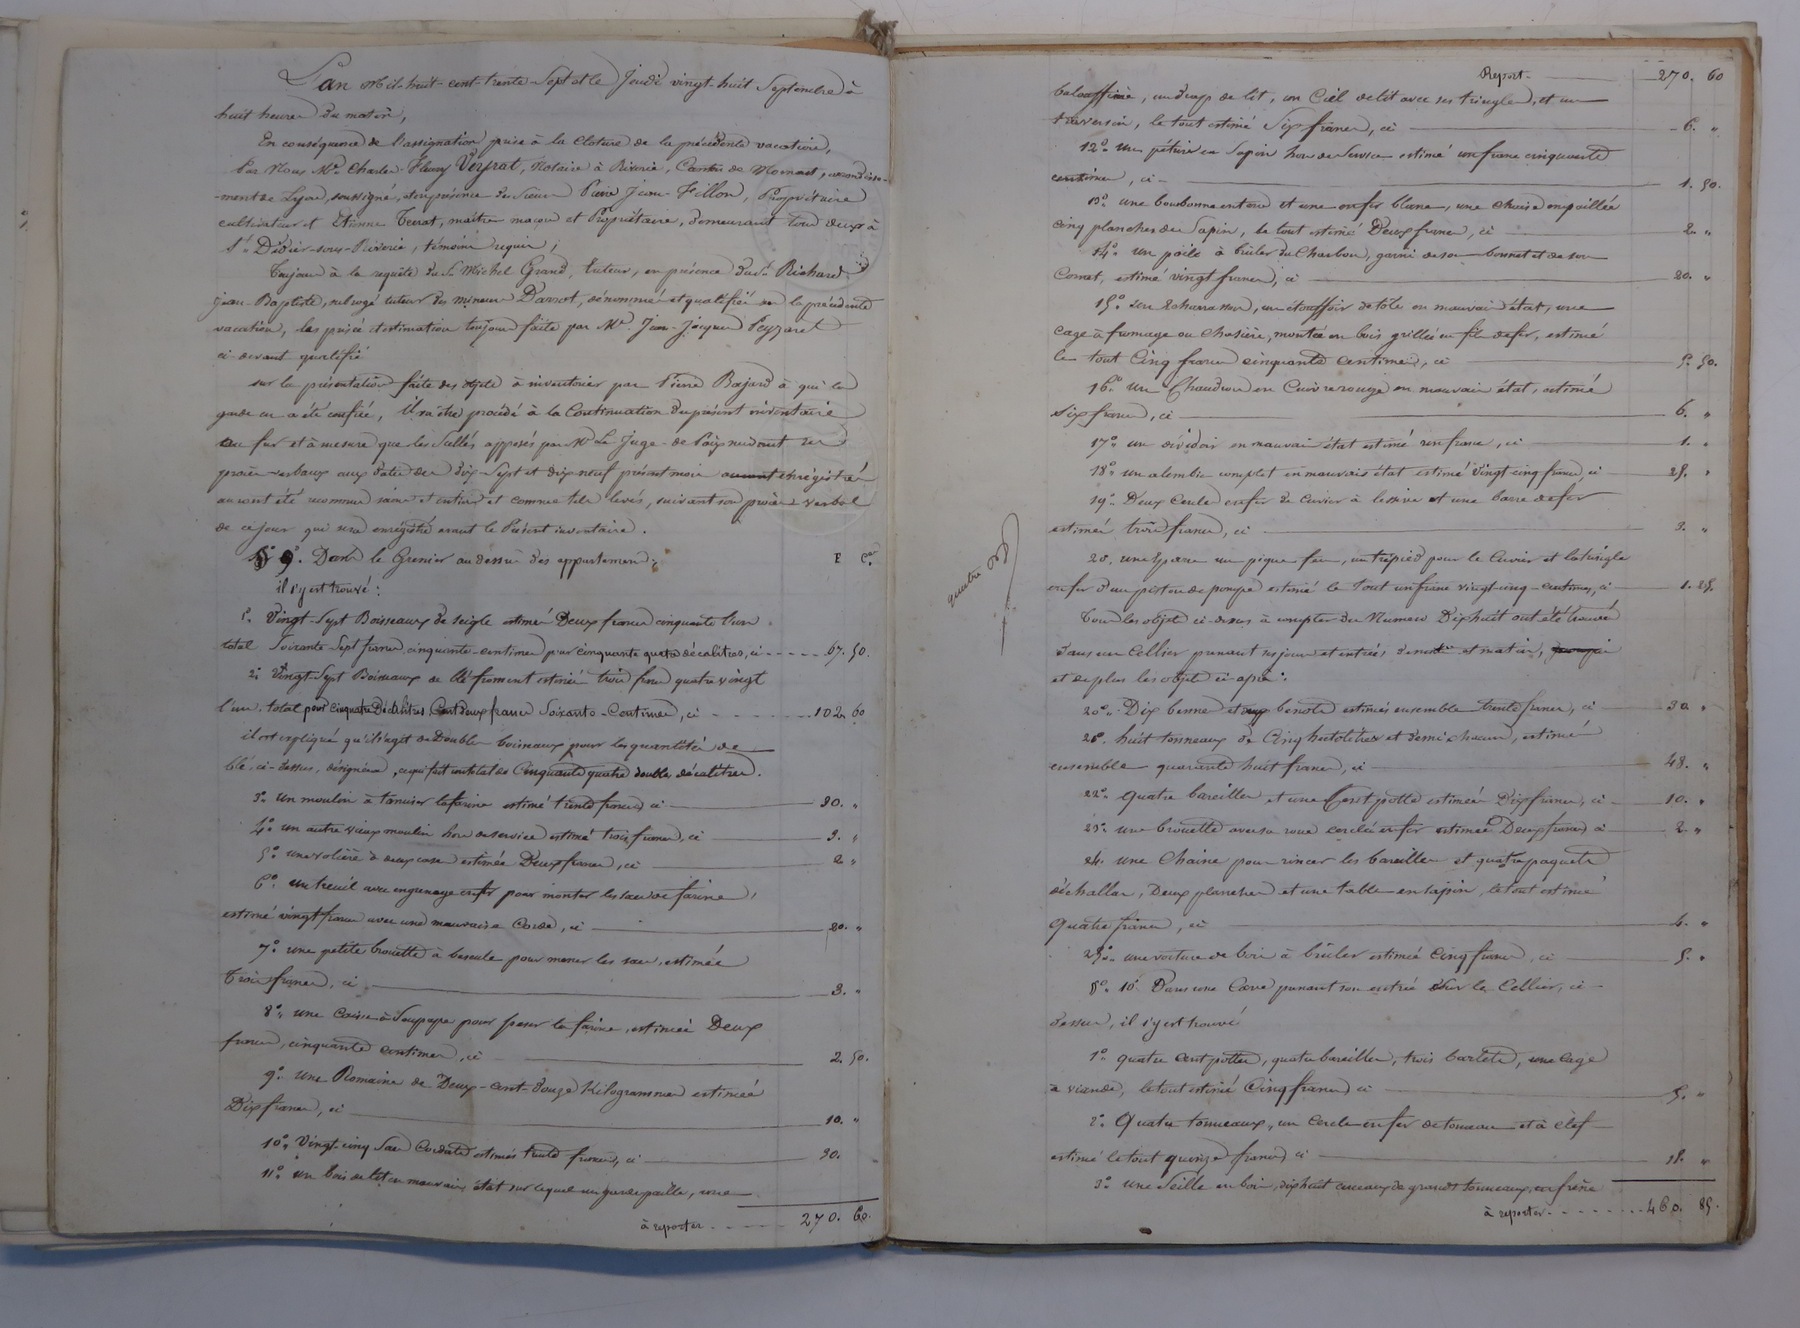 L'an Mil-huit-cent-trente-Sept et le Jeudi vingt-huit Septembre à
huit heures du matin,
En conséquence de l'assignation prise à la Cloture de la précédente vacation,
Par Nous Me Charles Fleury Veyrat, Notaire à Riverie, Canton de Mornant, arrondisse-
-ment de Lyon, soussigné, et en présence des Sieurs Pierre Jean-Fillon, Propriétaire
cultivateur et Etienne Terrat, maître maçon et Propriétaire, demeurant tous deux à
St Didier-sous-Riverie, témoins requis;
Toujours à la requête du Sr Michel Grand, tuteur, en présence du Sr Richard
jean-Baptiste, subrogé tuteur des mineurs Darnot, dénommés et qualifiés en la précédente
vacation, les prisée et estimation toujours faite par Me Jean-Jacques Peyzaret
ci-devant qualifié
sur la présentation faite des objets à inventorier par Pierre Bajard à qui la
garde en a été confiée, il va être procédé à la Continuation du présent inventaire
au fur et à mesure que les Scellés apposés par Mr Le Juge-de-Paix suivant ses
procès-verbaux aux dates des dix-Sept et dix-neuf présent mois enregistrés
auront été reconnus sains et entiers et comme tels levés, suivant son procès-verbal
de ce jour qui sera enregistré avant le Présent inventaire.
§ 9. Dans le Grenier au dessus des appartemens;
F. Ces
il s'y est trouvé:
1° Vingt-Sept Boisseaux de seigle estimés Deux francs cinquante l'un
total Soixante-Sept francs cinquante-centimes pour cinquante quatre décalitres, ci 67. 50.
2° Vingt-Sept Boisseaux de blé froment estimés trois francs quatre vingt
l'un. total pour cinquante Décalitres Cent deux francs Soixante-Centimes, ci 102. 60
il est expliqué qu'il s'agit de Doubles boisseaux pour les quantités de
blé, ci-dessus, désignées, ce qui fait un total de Cinquante quatre double décalitres.
3° un moulin à tamiser la farine estimé trente francs, ci 30. "
4° un autre vieux moulin hors de service estimé trois francs, ci 3. "
5° une volière à deux cases estimée Deux francs, ci 2 "
6° un treuil avec engrenage en fer pour monter les sacs de farine,
estimé vingt francs avec une mauvaise Corde, ci 20. "
7° une petite brouette à bascule pour mener les sacs, estimée
Trois francs, ci 3. "
8° une Caisse à Soupape pour peser la farine, estimée Deux
francs, cinquante centimes, ci 2. 50.
9° une Romaine de Deux-cent-douze Kilogrammes estimée
Dix francs, ci 10. "
10° Vingt-cinq Sacs Cordats estimés trente francs, ci 30.
11° un bois de lit en mauvais état sur lequel un garde paille, une
à reporter 270. 60.
Report 270. 60
baloufière, un drap de lit, un Ciel de lit avec ses tringles, et un
traversin, le tout estimé Six francs, ci 6. "
12° une pétrière en Sapin hors de Service estimé un franc cinquante
centimes, ci 1. 50.
13° une bonbonne en terre et une en fer blanc, une chaise empaillée
cinq planches de Sapin, le tout estimé Deux francs, ci 2. "
14° un poële à brûler du Charbon, garni de son bonnet et de son
Cornet, estimé vingt francs, ci 20. "
15° un étouffoir de tôle en mauvais état, une
cage à fromage ou Chasière, montée en bois grillée en fil de fer, estimé
le tout Cinq francs cinquante centimes, ci 5. 50.
16° un Chaudron en Cuivre rouge en mauvais état, estimé
six francs, ci 6. "
17° un dévidoir en mauvais état estimé un franc, ci 1. "
18° un alambic complet en mauvais état estimé Vingt cinq francs, ci 25. "
19° Deux Cercles en fer de Cuvier à lessive et une barre de fer
estimés trois francs, ci 3. "
20. une Sparre un pique feu, un trépied pour le Cuvier et la tringle
en fer d'un piston de pompe estimé le Tout un franc vingt-cinq centimes, ci 1. 25.
Tous les objets ci-dessus à compter du Numéro Dix huit ont été trouvés
dans un Cellier prenant ses jours et entrées
et de plus les objets ci-après:
20° Dix bennes et benots estimés ensemble trente francs, ci 30 "
21° huit tonneaux de Cinq hectolitres et demi chacun, estimés
ensemble quarante huit francs, ci 48. "
22° Quatre bareilles et une Cent potte estimées Dix francs, ci 10. "
23° une brouette avec sa roue cerclée en fer estimée Deux francs, ci 2 "
24. une Chaine pour rincer les bareilles et quatre paquets
d'échallas, Deux planches et une table en sapin, le tout estimé
Quatre francs, ci 4. "
25° une voiture de bois à brûler estimée Cinq francs, ci 5. "
§ 10 Dans une Cave prenant son entrée sur le Cellier, ci-
dessus, il s'y est trouvé
1° quatre cent pottes, quatre bareilles, trois barlets, une cage
à viande, le tout estimé Cinq francs, ci 5. "
2° Quatre tonneaux, un Cercle en fer de tonneau et à clef
estimé le tout quinze francs, ci 15. "
3° une Seille en bois, dix huit cuceaux de grands tonneaux, en frêne
à reporter 460. 85.